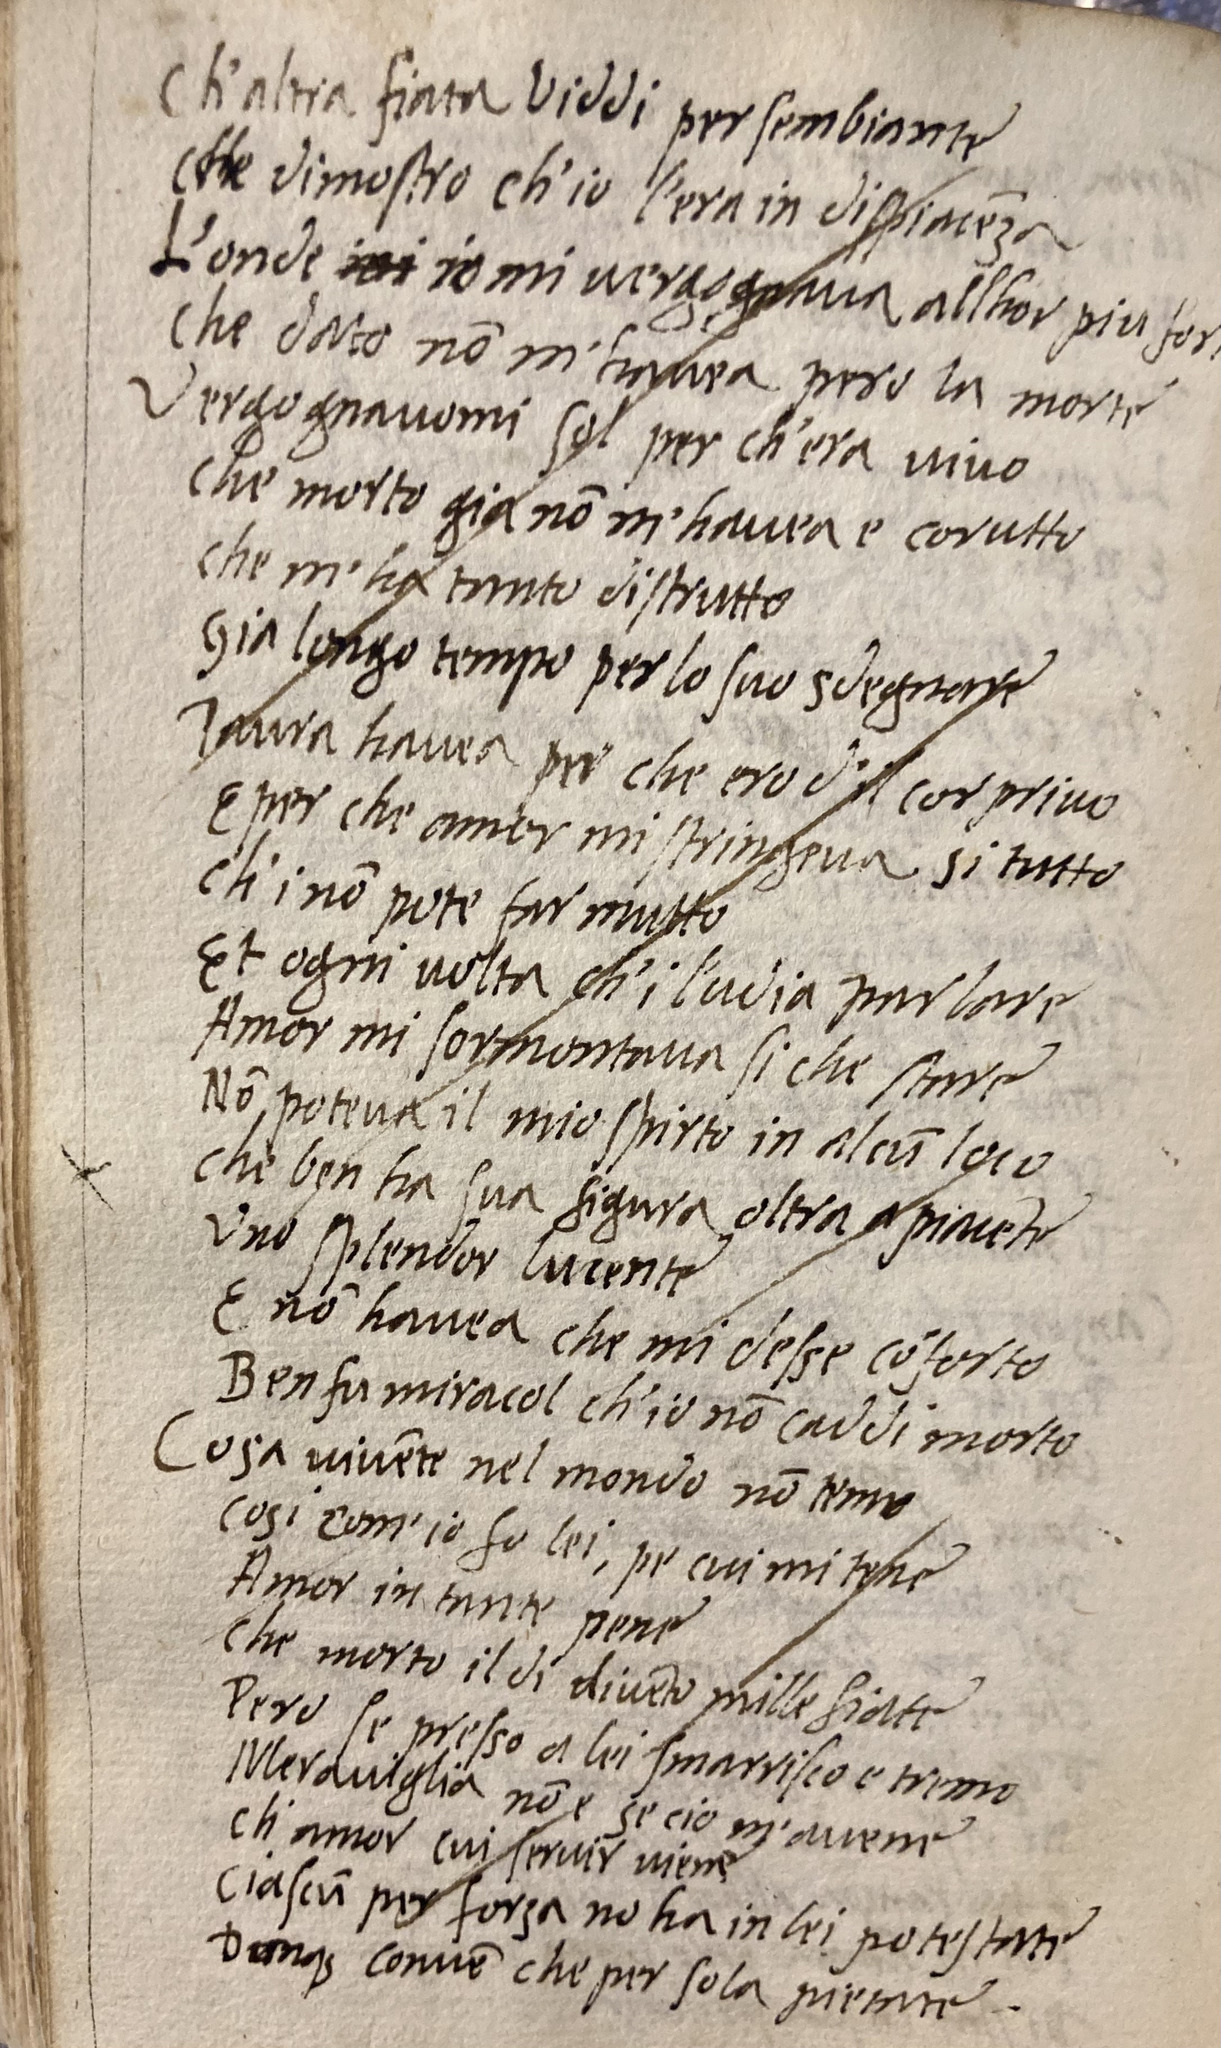 Ch'altra fiata viddi per sembiante
Che dimostro ch'io l'era in dispiacēza
L'onde io mi uergognaua allhor piu for
Che dato nō m'hauea pero la morte
Vergognauomi sol per ch'era uiuo
Che morto gia nō m'hauea e corutto
Che m'ha tanto distrutto
Gia longo tempo per lo suo sdegnare
Paura hauea per che ero d'il cor priuo
E per che amor mi stringeua si tutto
Ch'i nō pote far mutto
Et ogni uolta ch'i l'udia parlare
Amor mi sormontaua si che stare
Nō poteua il mio spirto in alcū loco
Che ben ha sua figura oltra apiacēte
Vno splendor lucente
E nō hauea che mi desse cōforto
Ben fu miracol ch'io nō caddi morto
Cosa uiuēte nel mondo nō temo
Cosi com'io fo lei, pe cui mi tene
Amor in tante pene
Che morto il di diuēto mille fiate
Pero se presso a lei smarrisco e tremo
Merauiglia nō e se cio m'auene
Ch'amor cui seruir uiene
Ciascū per forza no ha in lei potestate
Donqȝ conuē che per sola pietate